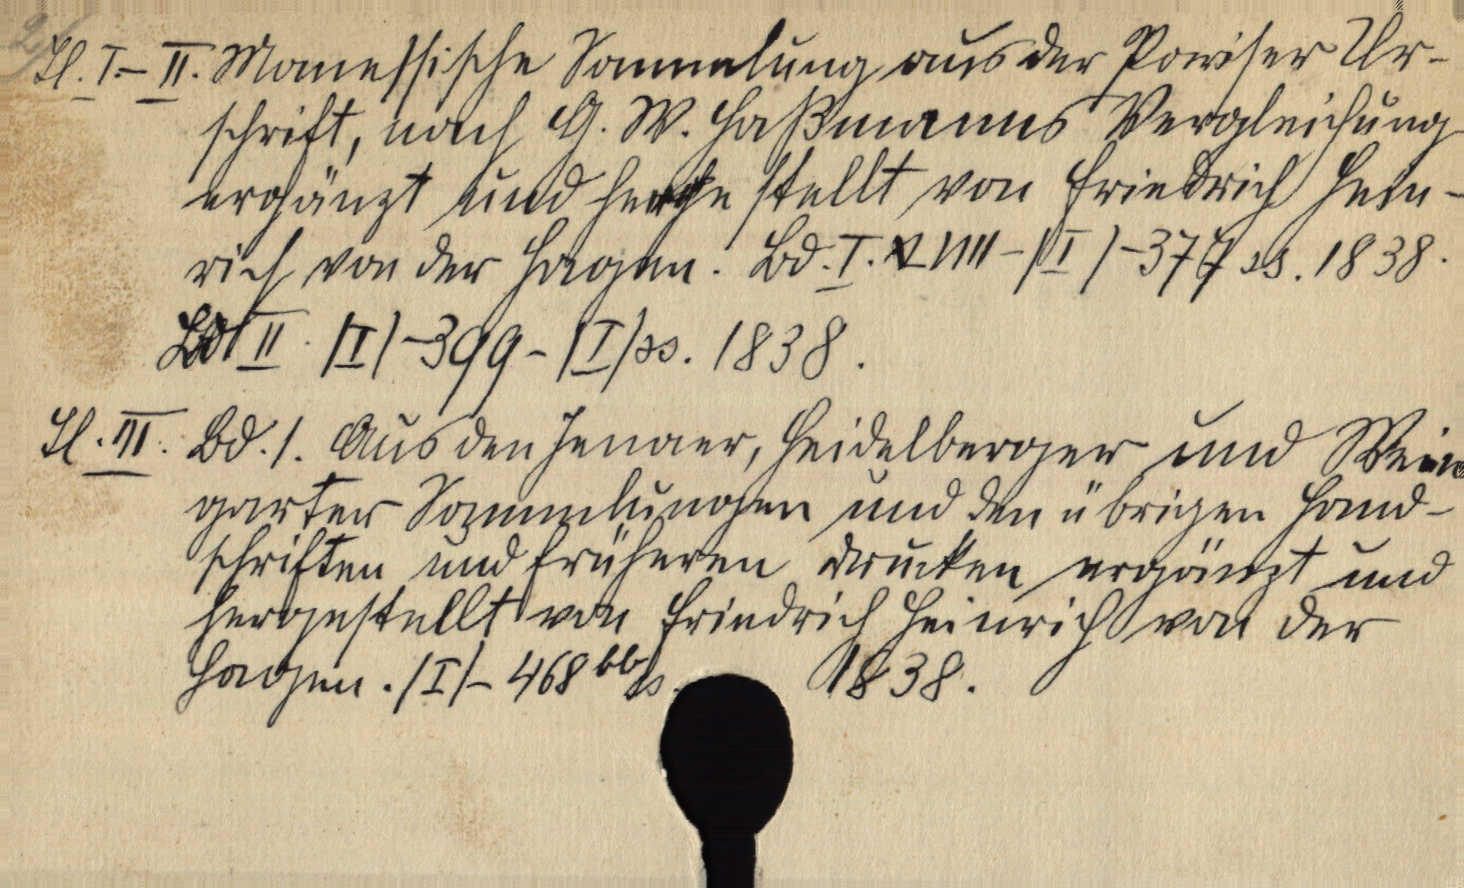 Tl. I.–II. Manessische Sammlung aus der Pariser Ur-
schrift, nach G. W. Raßmanns Vergleichung
ergänzt und hergestellt von Friedrich Hein-
rich von der Hagen. Bd. I. XLVIII–/II/–377 ss. 1838.
Bd II. /I/–399–/I/ ss. 1838.
Tl. III. Bd. 1. Aus den Jenaer, Heidelberger und Wein
garter Sammlungen und den übrigen Hand-
schriften und früheren Drucken ergänzt und
hergestellt von Friedrich Heinrich von der
Hagen. /I/–468 bb s. 1838.